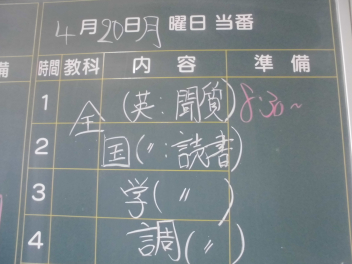 4月20日月曜日 当番
備 時間 教科 内容 準備
1 全 (英:聞質) 8:30~
2 国(〃:読書)
3 学(〃)
4 調(〃)